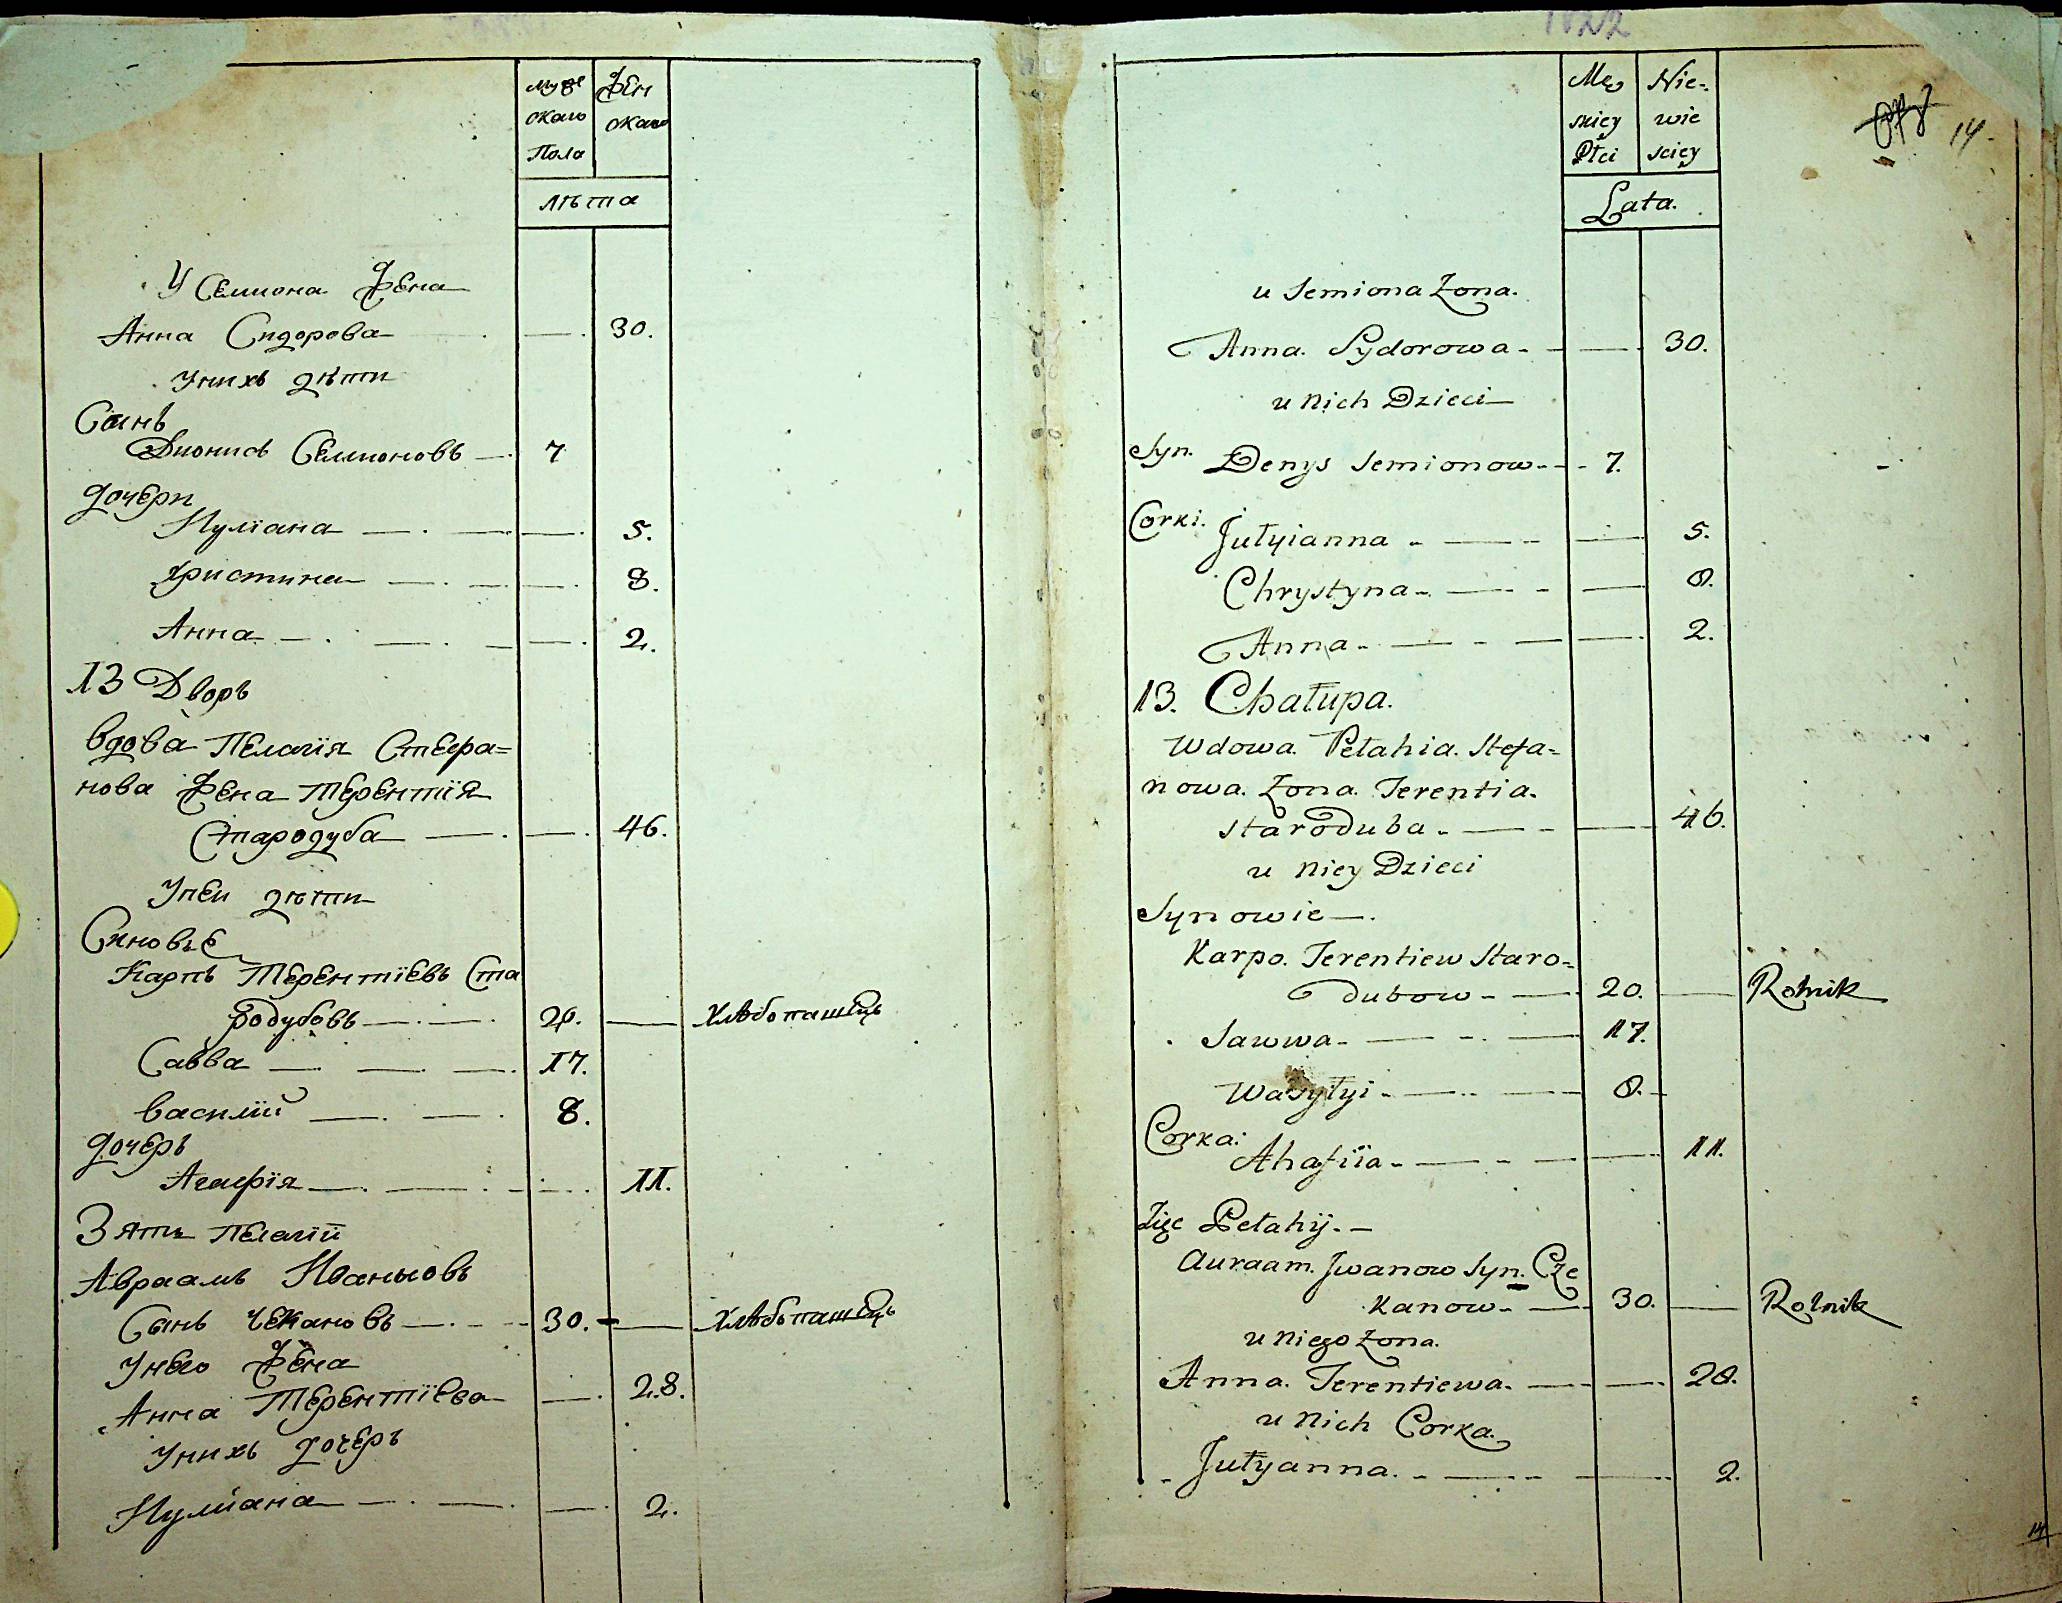 муже
скаго
Пола
жен
скаго
лѣта
У Семиона жена
Анна Сидорова 30.
У нихъ дѣти
Сынъ
Дионисъ Семионовъ 7
дочери
Иулiана 5.
Христина 8.
Анна 2.
13 Дворъ
Вдова Пелагiя Стефа=
нова жена Терентiя
Стародуба 46.
У неи дѣти
Синовьѣ
Карпъ Терентiевъ Ста
родубовъ 20. хлѣбопашецъ
Савва 17.
Василiй 8.
дочерь
Агафiя 11.
Зять Пелагiи
Авраамъ Ивановъ
Сынъ Чекановъ 30. хлѣбопашецъ
У него жена
Анна Терентiева 28.
У нихъ дочерь
Иулiана 2.
1822
14.
Mę
skiey
Płci
Nie=
wie
sciey
Lata.
u Semiona Żona.
Anna. Sydorowa 30.
u nich Dzieci
Syn. Denys Semionow 7.
Corki.
Jułyianna 5.
Chrystyna 8.
Anna 2.
13. Chałupa.
Wdowa. Pełahia. Stefa=
nowa. Żona. Terentia.
Staroduba 46.
u niey Dzieci
Synowie
Karpo. Terentiew Staro=
dubow 20. Rolnik
Sawwa 17.
Wasyłyi 8.
Corka:
Ahafiia 11.
Zięc Pełahij.
Auraam. Jwanow Syn. Cze
kanow 30. Rolnik
u niego żona.
Anna. Terentiewa. 28.
u nich Corka.
Jułyanna. 2.
14